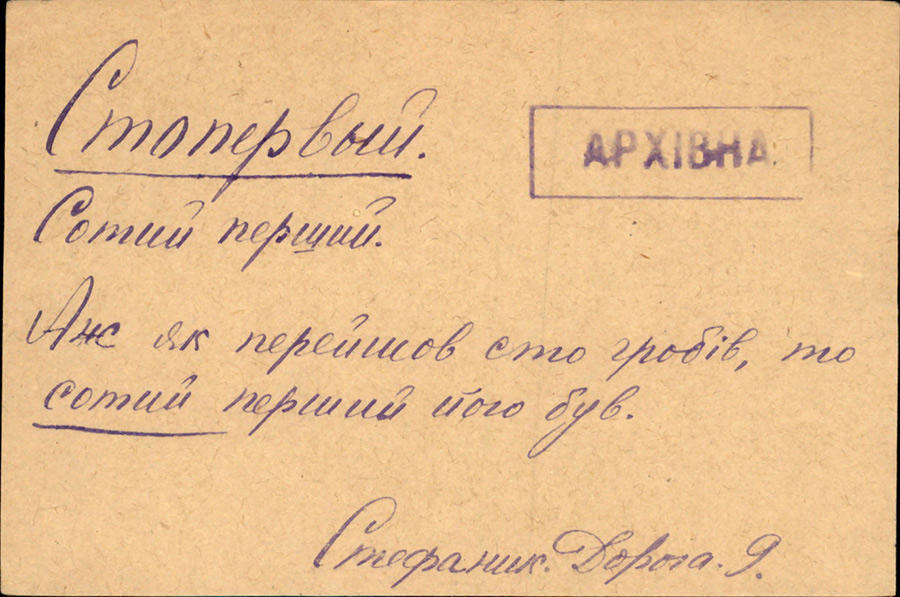 Стопервый.
АРХІВНА
Сотий перший.
Аж як перейшов сто гробів, то
сотий перший його був.
Стефаник. Дорога. 9.